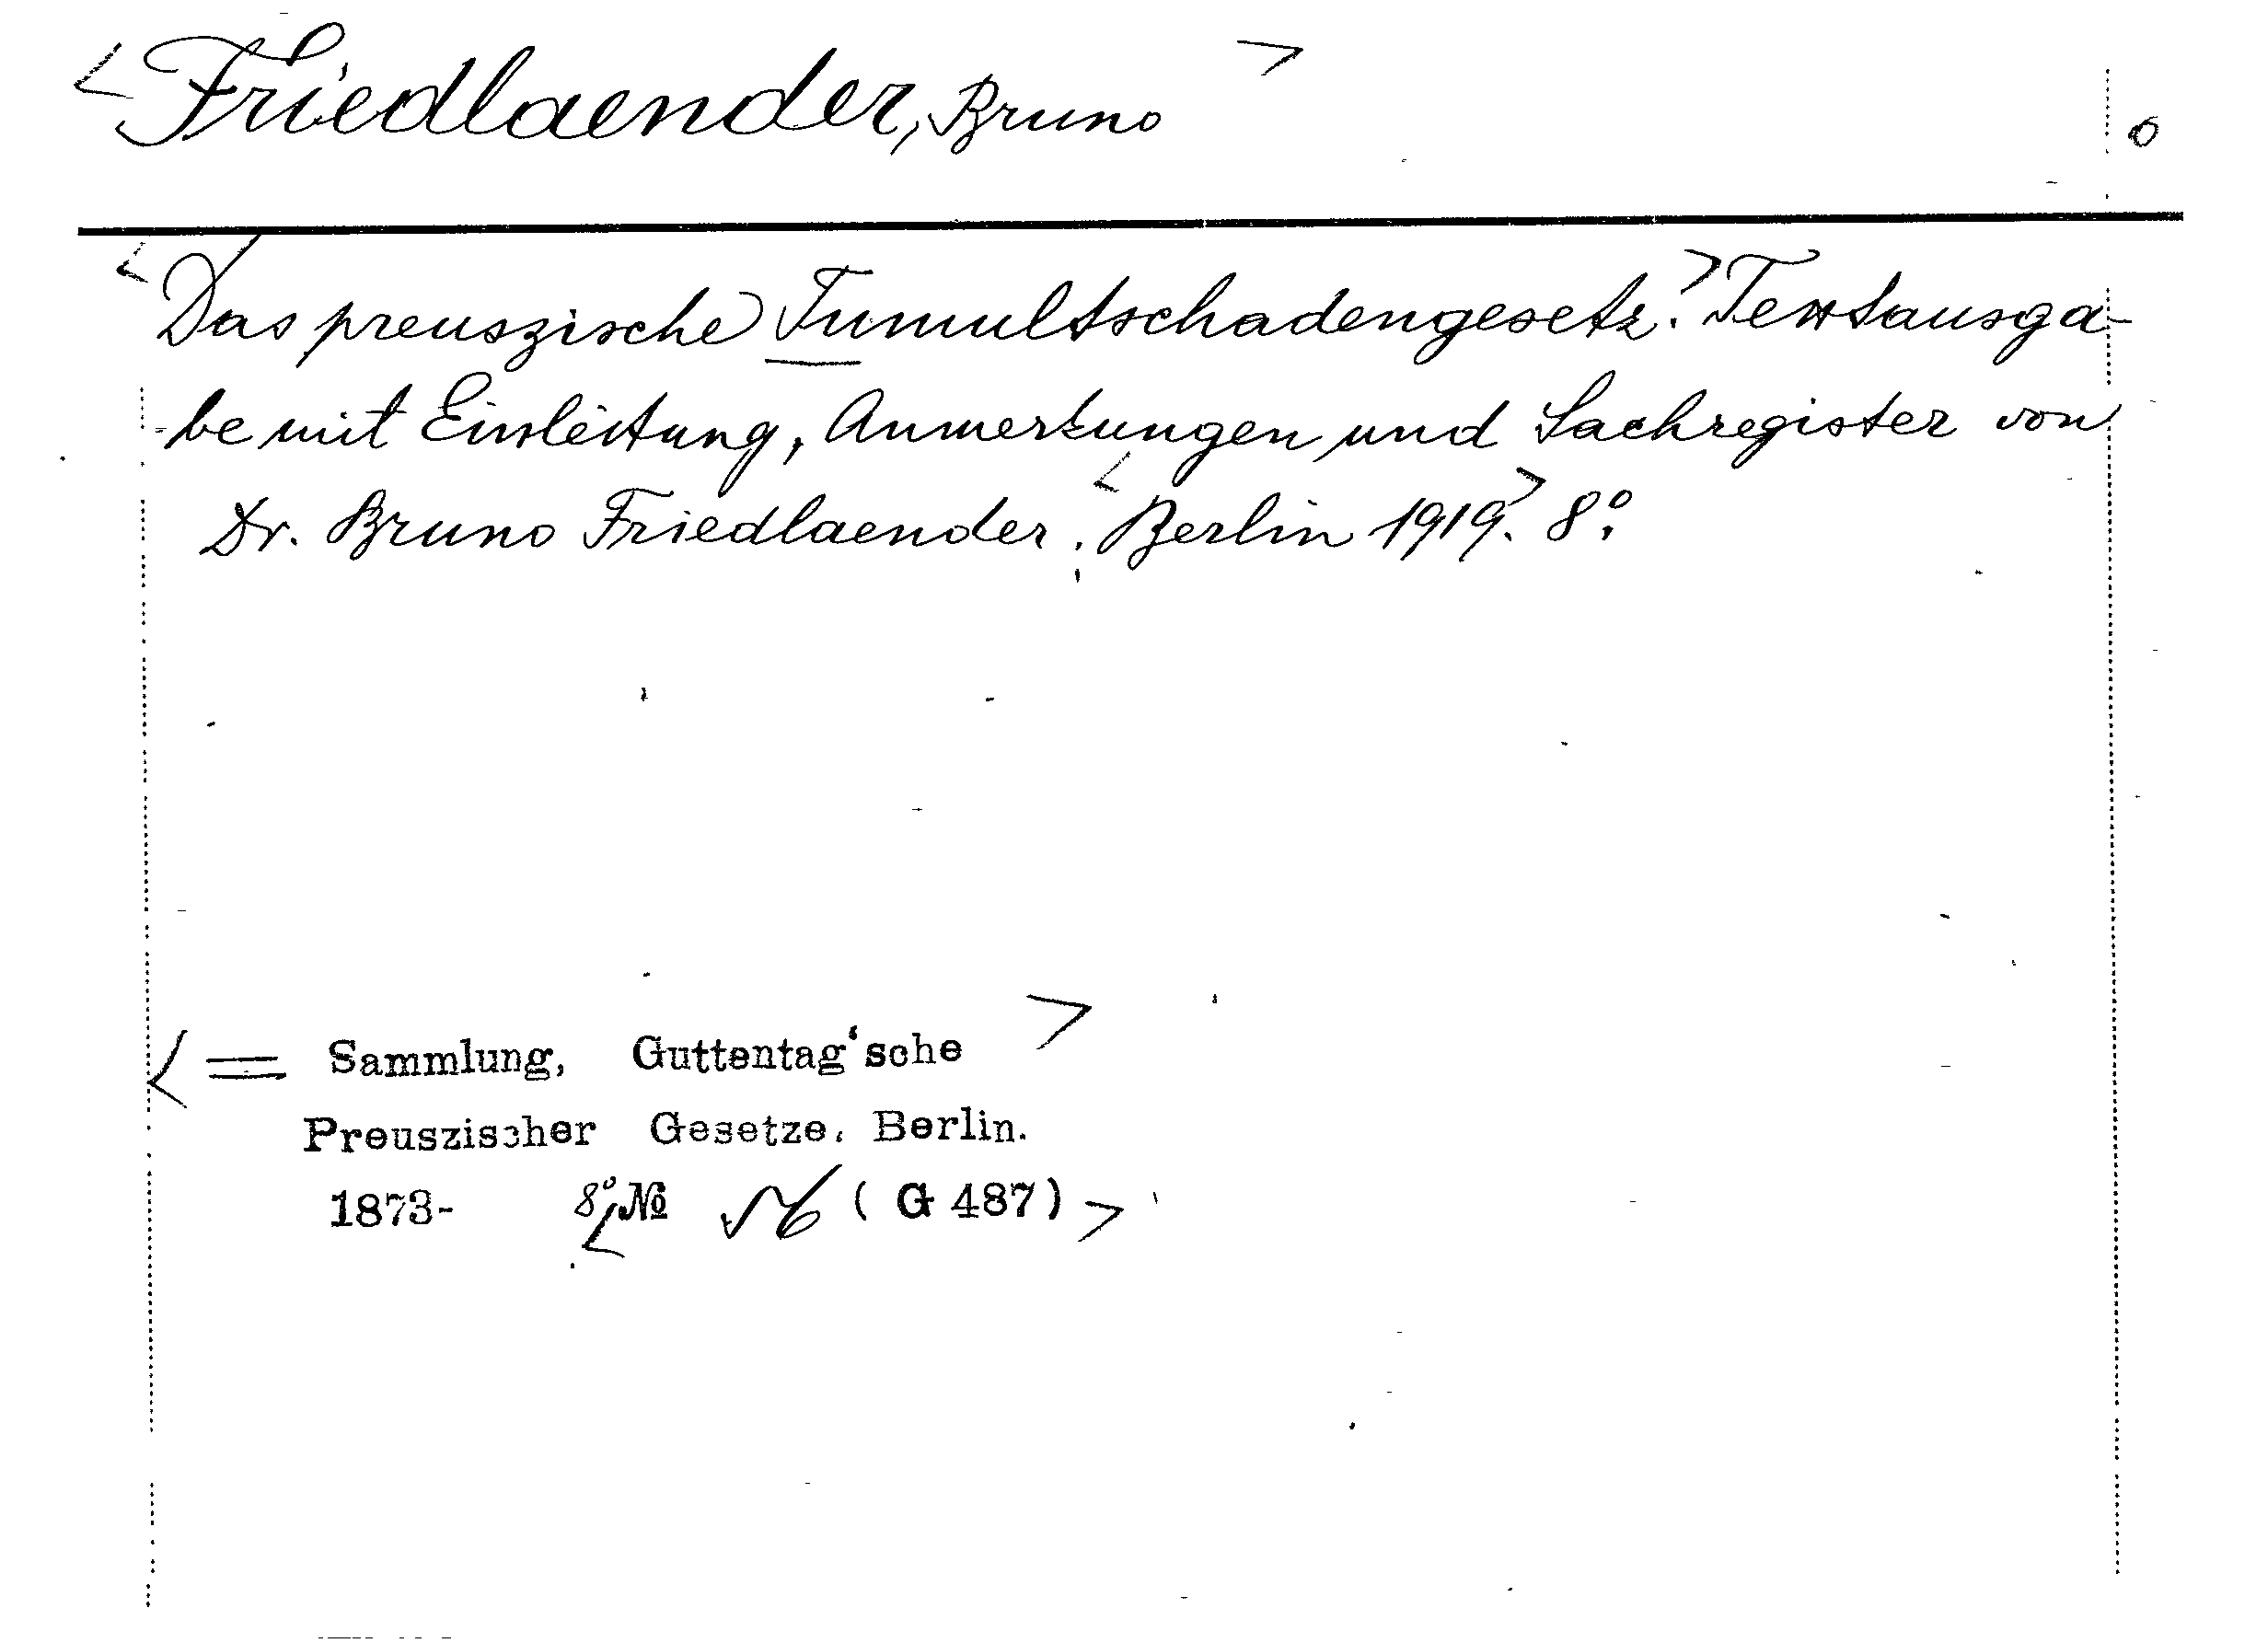 <Friedlaender, Bruno>
6
<Das preuszische Tumultschadengesetz.> Textausga-
be mit Einleitung, Anmerkungen und Sachregister von
Dr. Bruno Friedlaender. <Berlin 1919.> 8º.
<= Sammlung, Guttentag'sche>
Preuszischer Gesetze. Berlin.
1873- 8º <№ (G 487)>